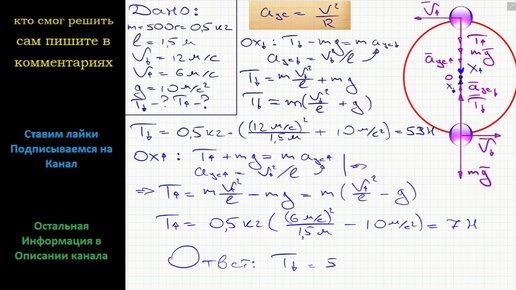 кто смог решить
сам пишите в
комментариях
Ставим лайки
Подписываемся на
Канал
Остальная
Информация в
Описании канала
Дано:
m=500г=0,5кг
l=1,5м
V↓=12м/с
V↑=6м/с
g=10м/с²
T↓-? T↑-?
aцс = V²/R
Ox↓: T↓-mg=maцс↓
aцс↓=V↓²/l
T↓=mV↓²/l+mg
T↓=m(V↓²/l+g)
T↓=0,5кг·((12м/с)²/1,5м+10м/с²)=53Н
Ox↑: T↑+mg=maцс↑
aцс↑=V↑²/l
⇒ T↑=mV↑²/l-mg=m(V↑²/l-g)
T↑=0,5кг((6м/с)²/1,5м-10м/с²)=7Н
Ответ: T↓=5
V↑
T↑
mg
aцс
x↑
o
x↓
aцс
T↓
V↓
mg